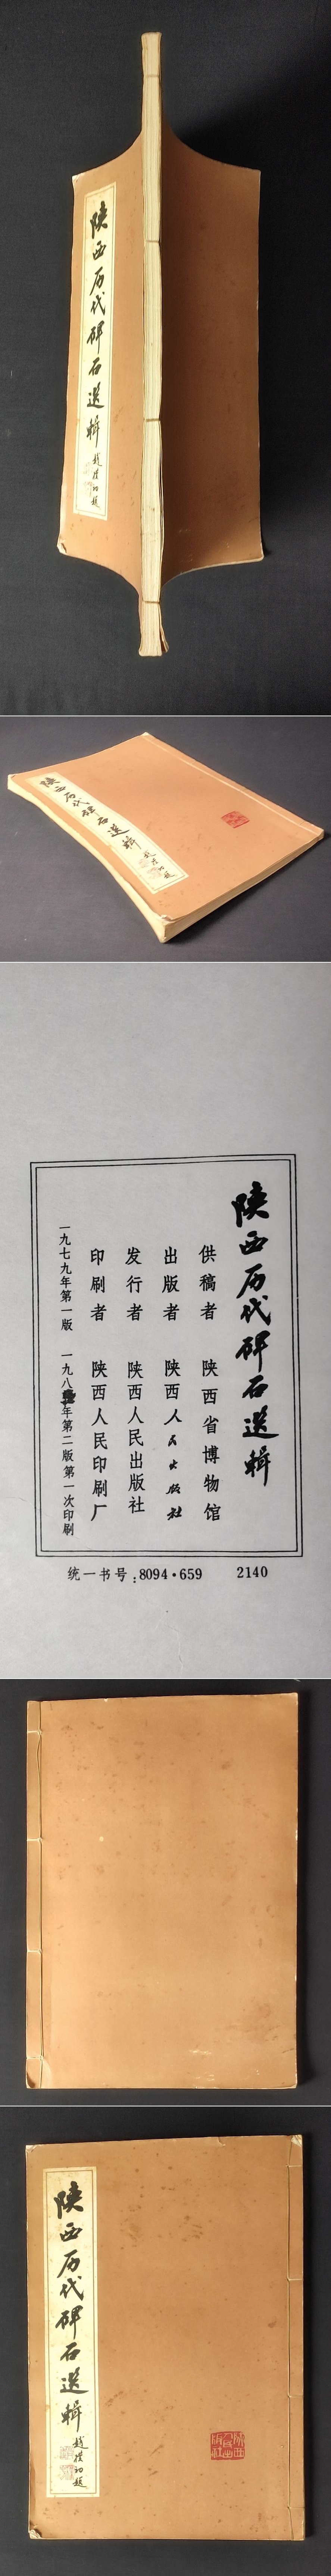 陕西历代碑石選輯
趙樸初题
陕西历代碑石選輯
趙樸初题
陕西历代碑石選輯
供稿者 陕西省博物馆
出版者 陕西人民出版社
发行者 陕西人民出版社
印刷者 陕西人民印刷厂
一九七九年第一版 一九八年第二版第一次印刷
统一书号:8094·659 2140
陕西历代碑石選輯
趙樸初题